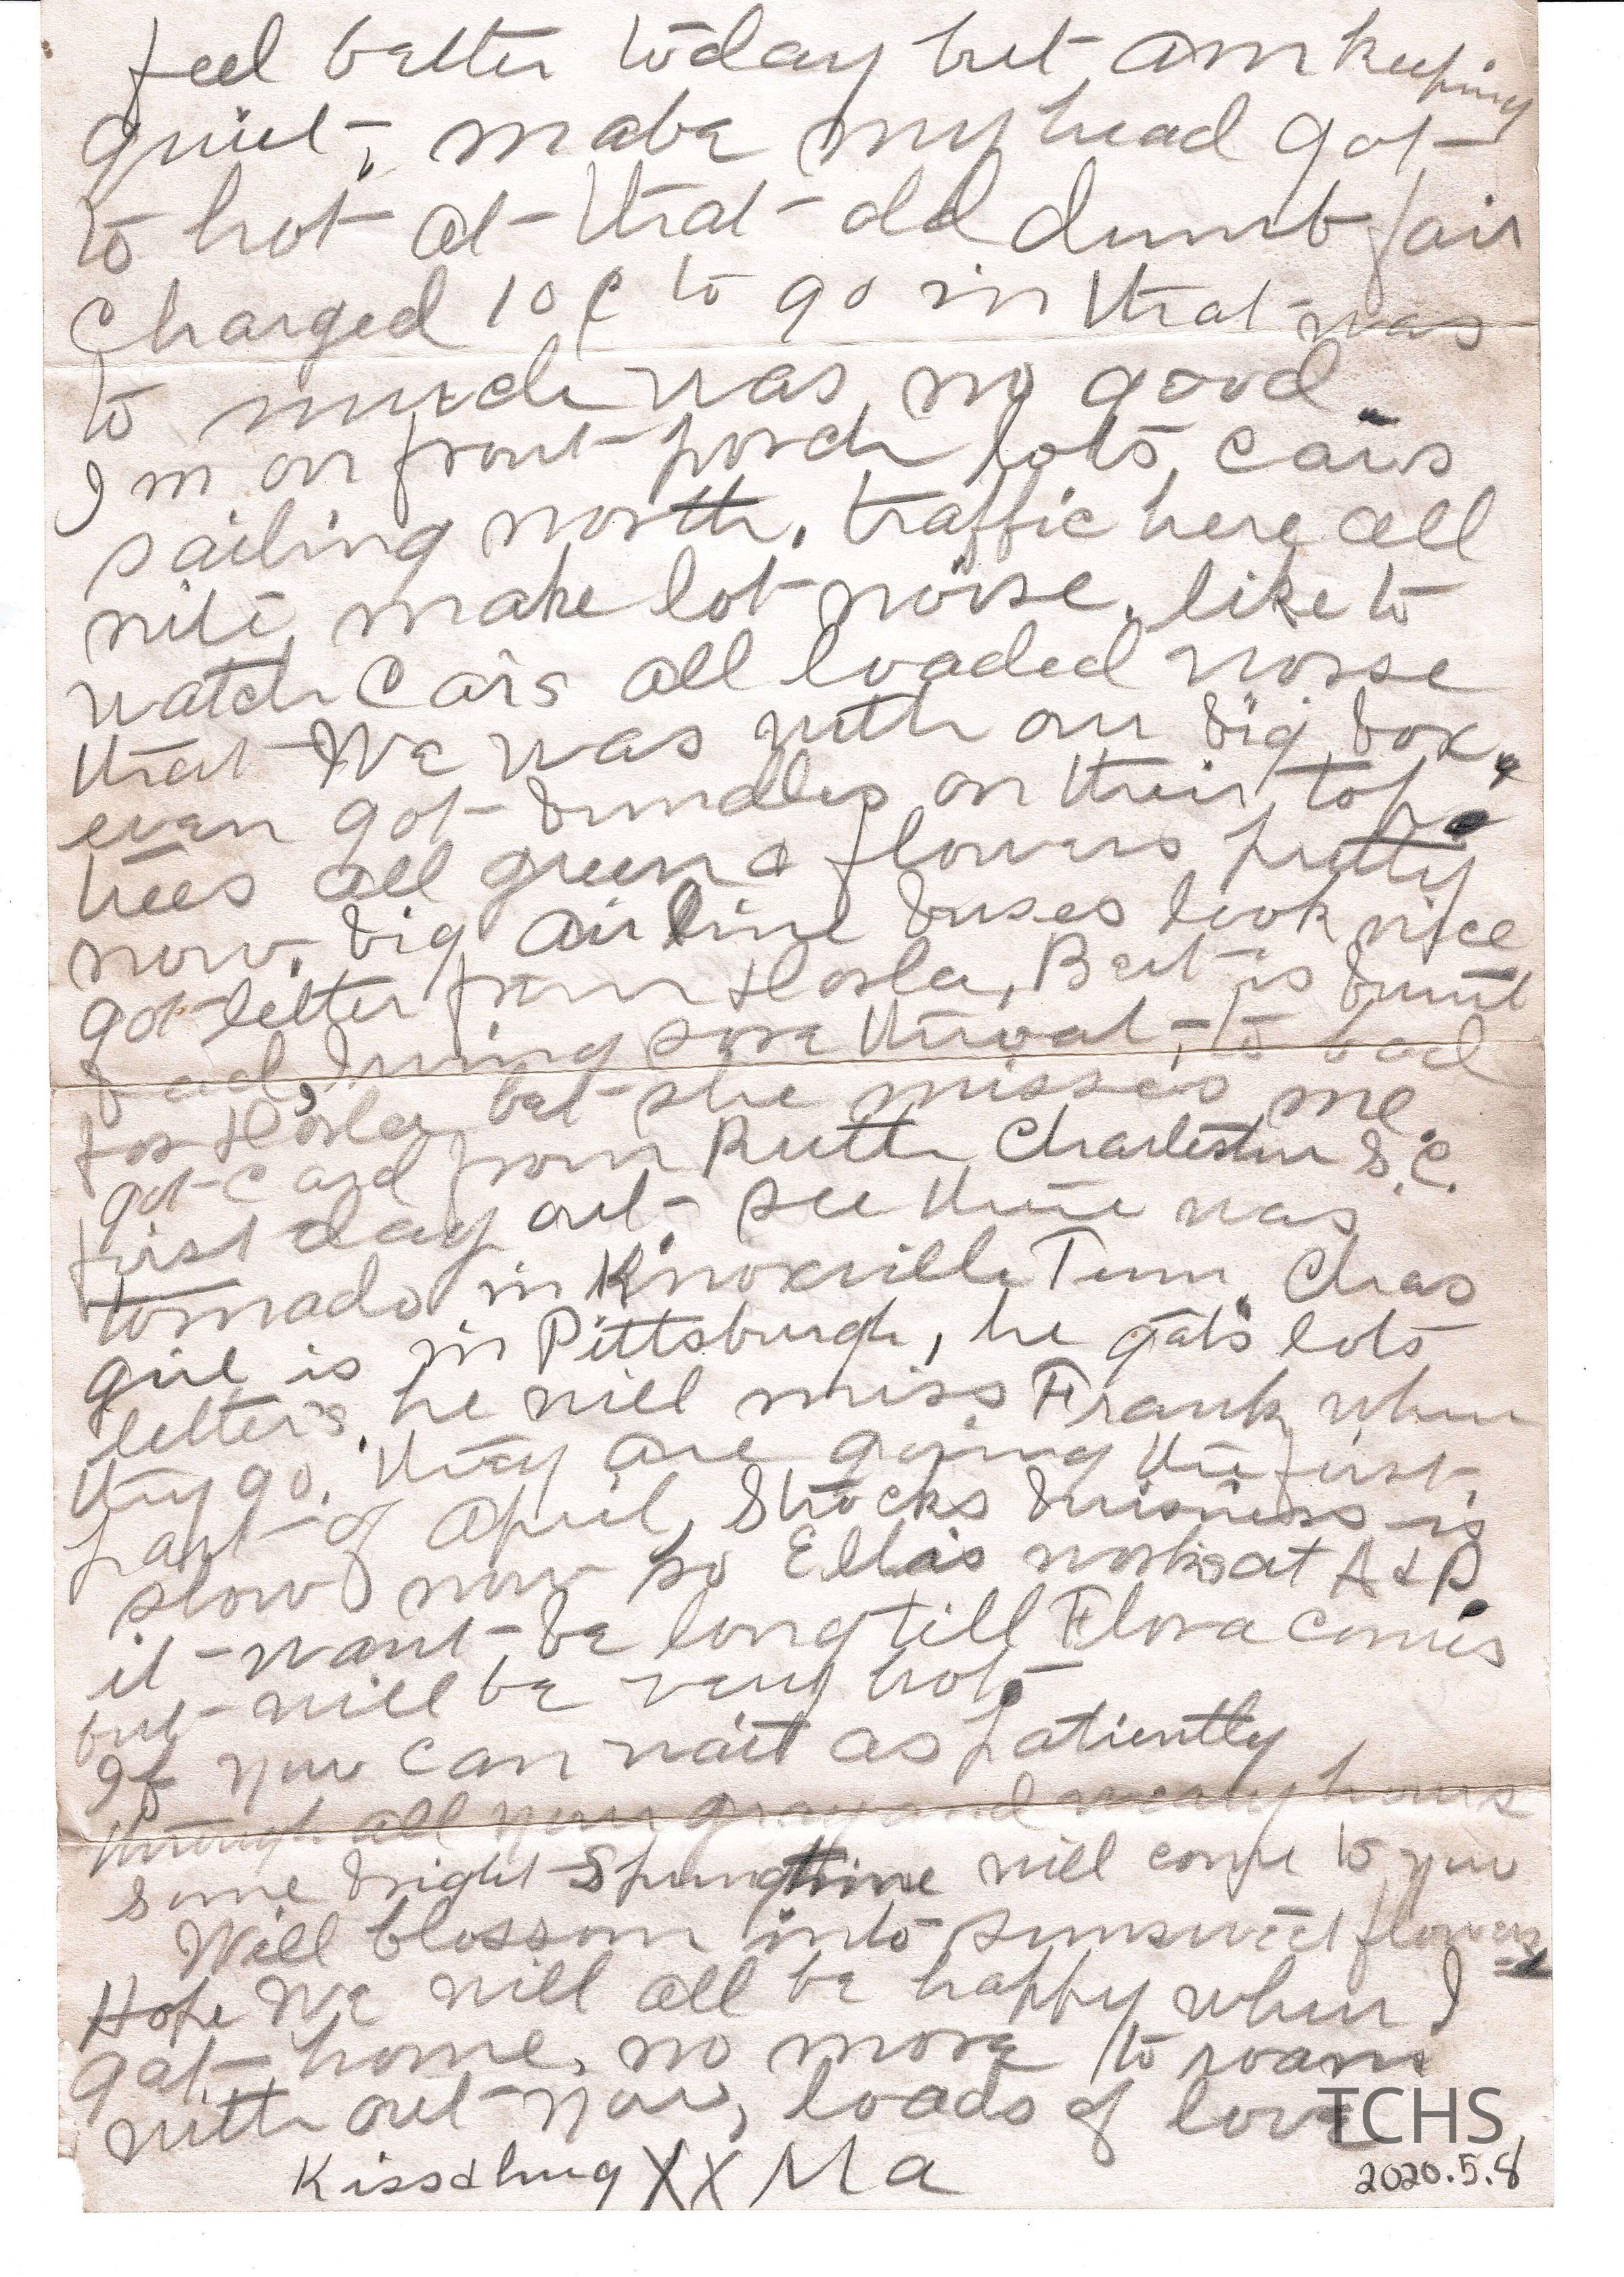 feel better today but am keeping
quiet, mabe my head got
to hot at that old dumb fair
Charged 10¢ to go in that was
to much was no good.
I m on front porch lots cars
sailing north. traffic here all
nite make lot noise. like to
watch Cars all loaded worse
that We was with our big box.
even got bundles on their top.
trees all green & flowers pretty
now. big Air line buses look nice
got letter from Hosler, Bert is
bad, sore throat, to bad
for Hosler bet she misses me.
got card from Ruth Charleston S.C.
first day out. see there was
tornado in Knoxville Tenn. Chas
girl is in Pittsburgh, he gets lots
letters. he will miss Frank when
they go. they are going the first
part of April, Strocks buisness is
slow now so Ellas works at A & P.
it want be long till Flora comes
but will be very hot.
If you can wait as patiently
through all your gray and weary hours
some bright Springtime will come to you
Will blossom into sunsweet flowers
Hope We will all be happy when I
get home, no more to roam
with out you, loads of love
Kiss & hug XX Ma
TCHS
2020.5.8